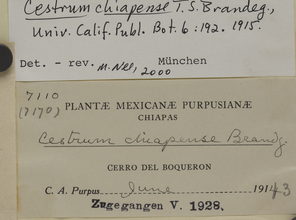 Cestrum chiapense T.S. Brandeg.,
Univ. Calif. Publ. Bot. 6:192. 1915.
Det. - rev. M. Nee, 2000 München
7110
(7170) PLANTÆ MEXICANÆ PURPUSIANÆ
CHIAPAS
Cestrum chiapense Brandg.
CERRO DEL BOQUERON
C. A. Purpus June 191 3
Zugegangen V. 1928.